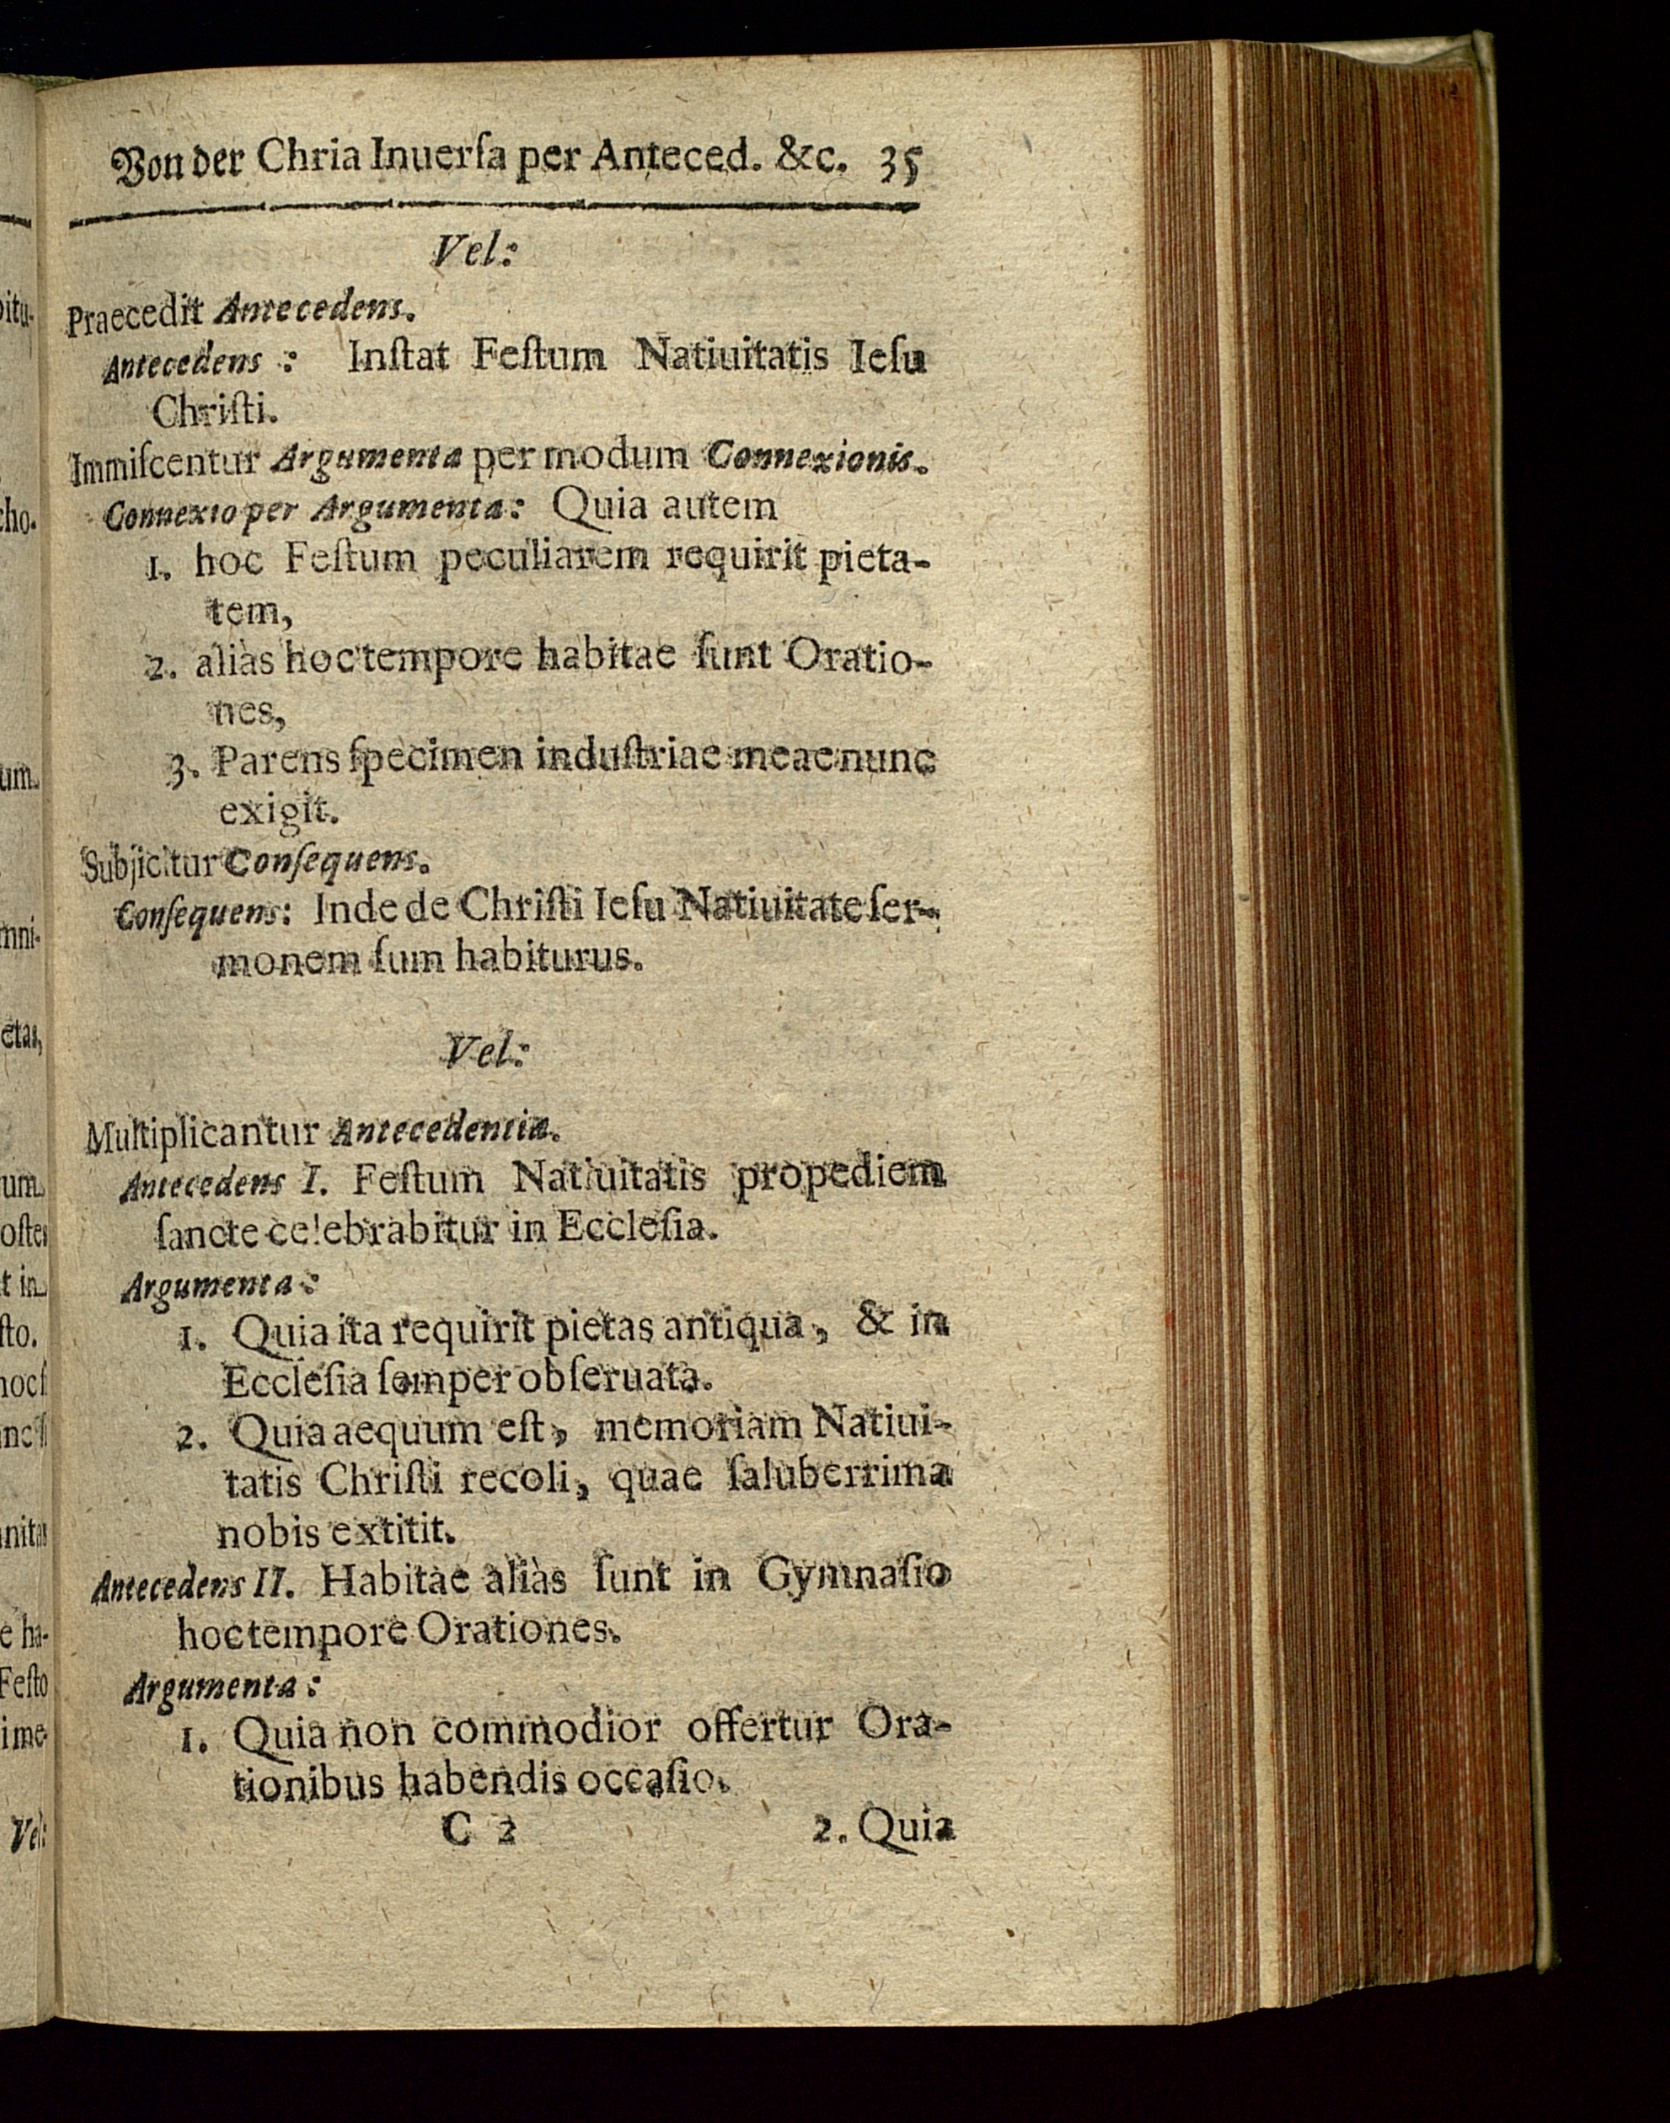 Von der Chria Inuerſa per Anteced. &c. 35
Vel:
Praecedit Antecedens.
Antecedens : Inſtat Feſtum Natiuitatis Ieſu
Chriſti.
Immiſcentur Argumenta per modum Connexionis.
Connexio per Argumenta: Quia autem
1. hoc Feſtum peculiarem requirit pieta-
tem,
2. aliàs hoc tempore habitae ſunt Oratio-
nes,
3. Parens ſpecimen induſtriae meae nunc
exigit.
Subjicitur Conſequens.
Conſequens: Inde de Chriſti Ieſu Natiuitate ſer-
monem ſum habiturus.
Vel:
Multiplicantur Antecedentia.
Antecedens I. Feſtum Natiuitatis propediem
ſancte celebrabitur in Eccleſia.
Argumenta:
1. Quia ita requirit pietas antiqua, & in
Eccleſia ſemper obſeruata.
2. Quia aequum eſt, memoriam Natiui-
tatis Chriſti recoli, quae ſaluberrima
nobis extitit.
Antecedens II. Habitae aliàs ſunt in Gymnaſio
hoc tempore Orationes.
Argumenta:
1. Quia non commodior offertur Ora-
tionibus habendis occaſio.
C 2 2. Quia